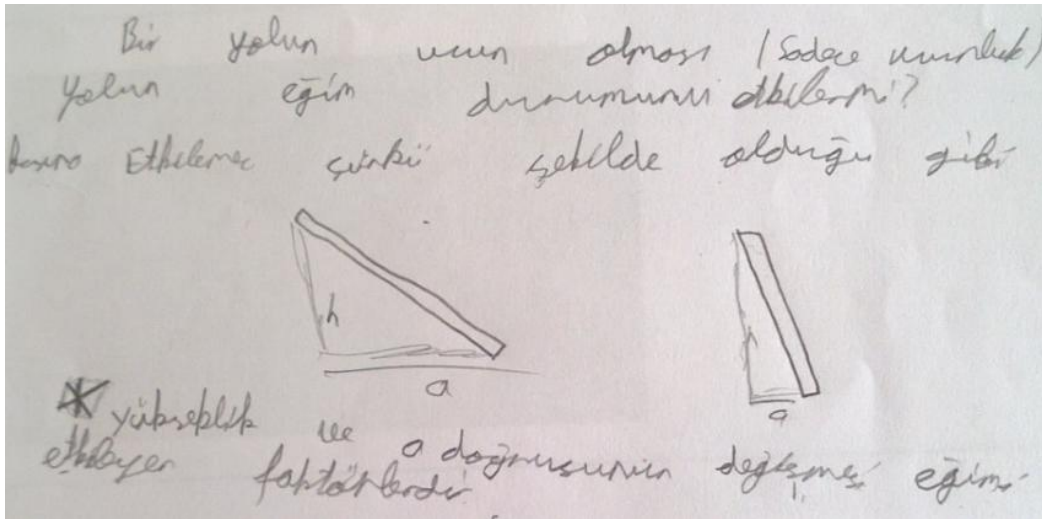 Bir yolun uzun olması (Sadece uzunluk)
yolun eğim durumunu etkilermi?
Etkilemez çünkü şekilde olduğu gibi
h
a
a
* yükseklik ve a doğrusunun değişmesi eğimi
etkileyen faktörlerdir